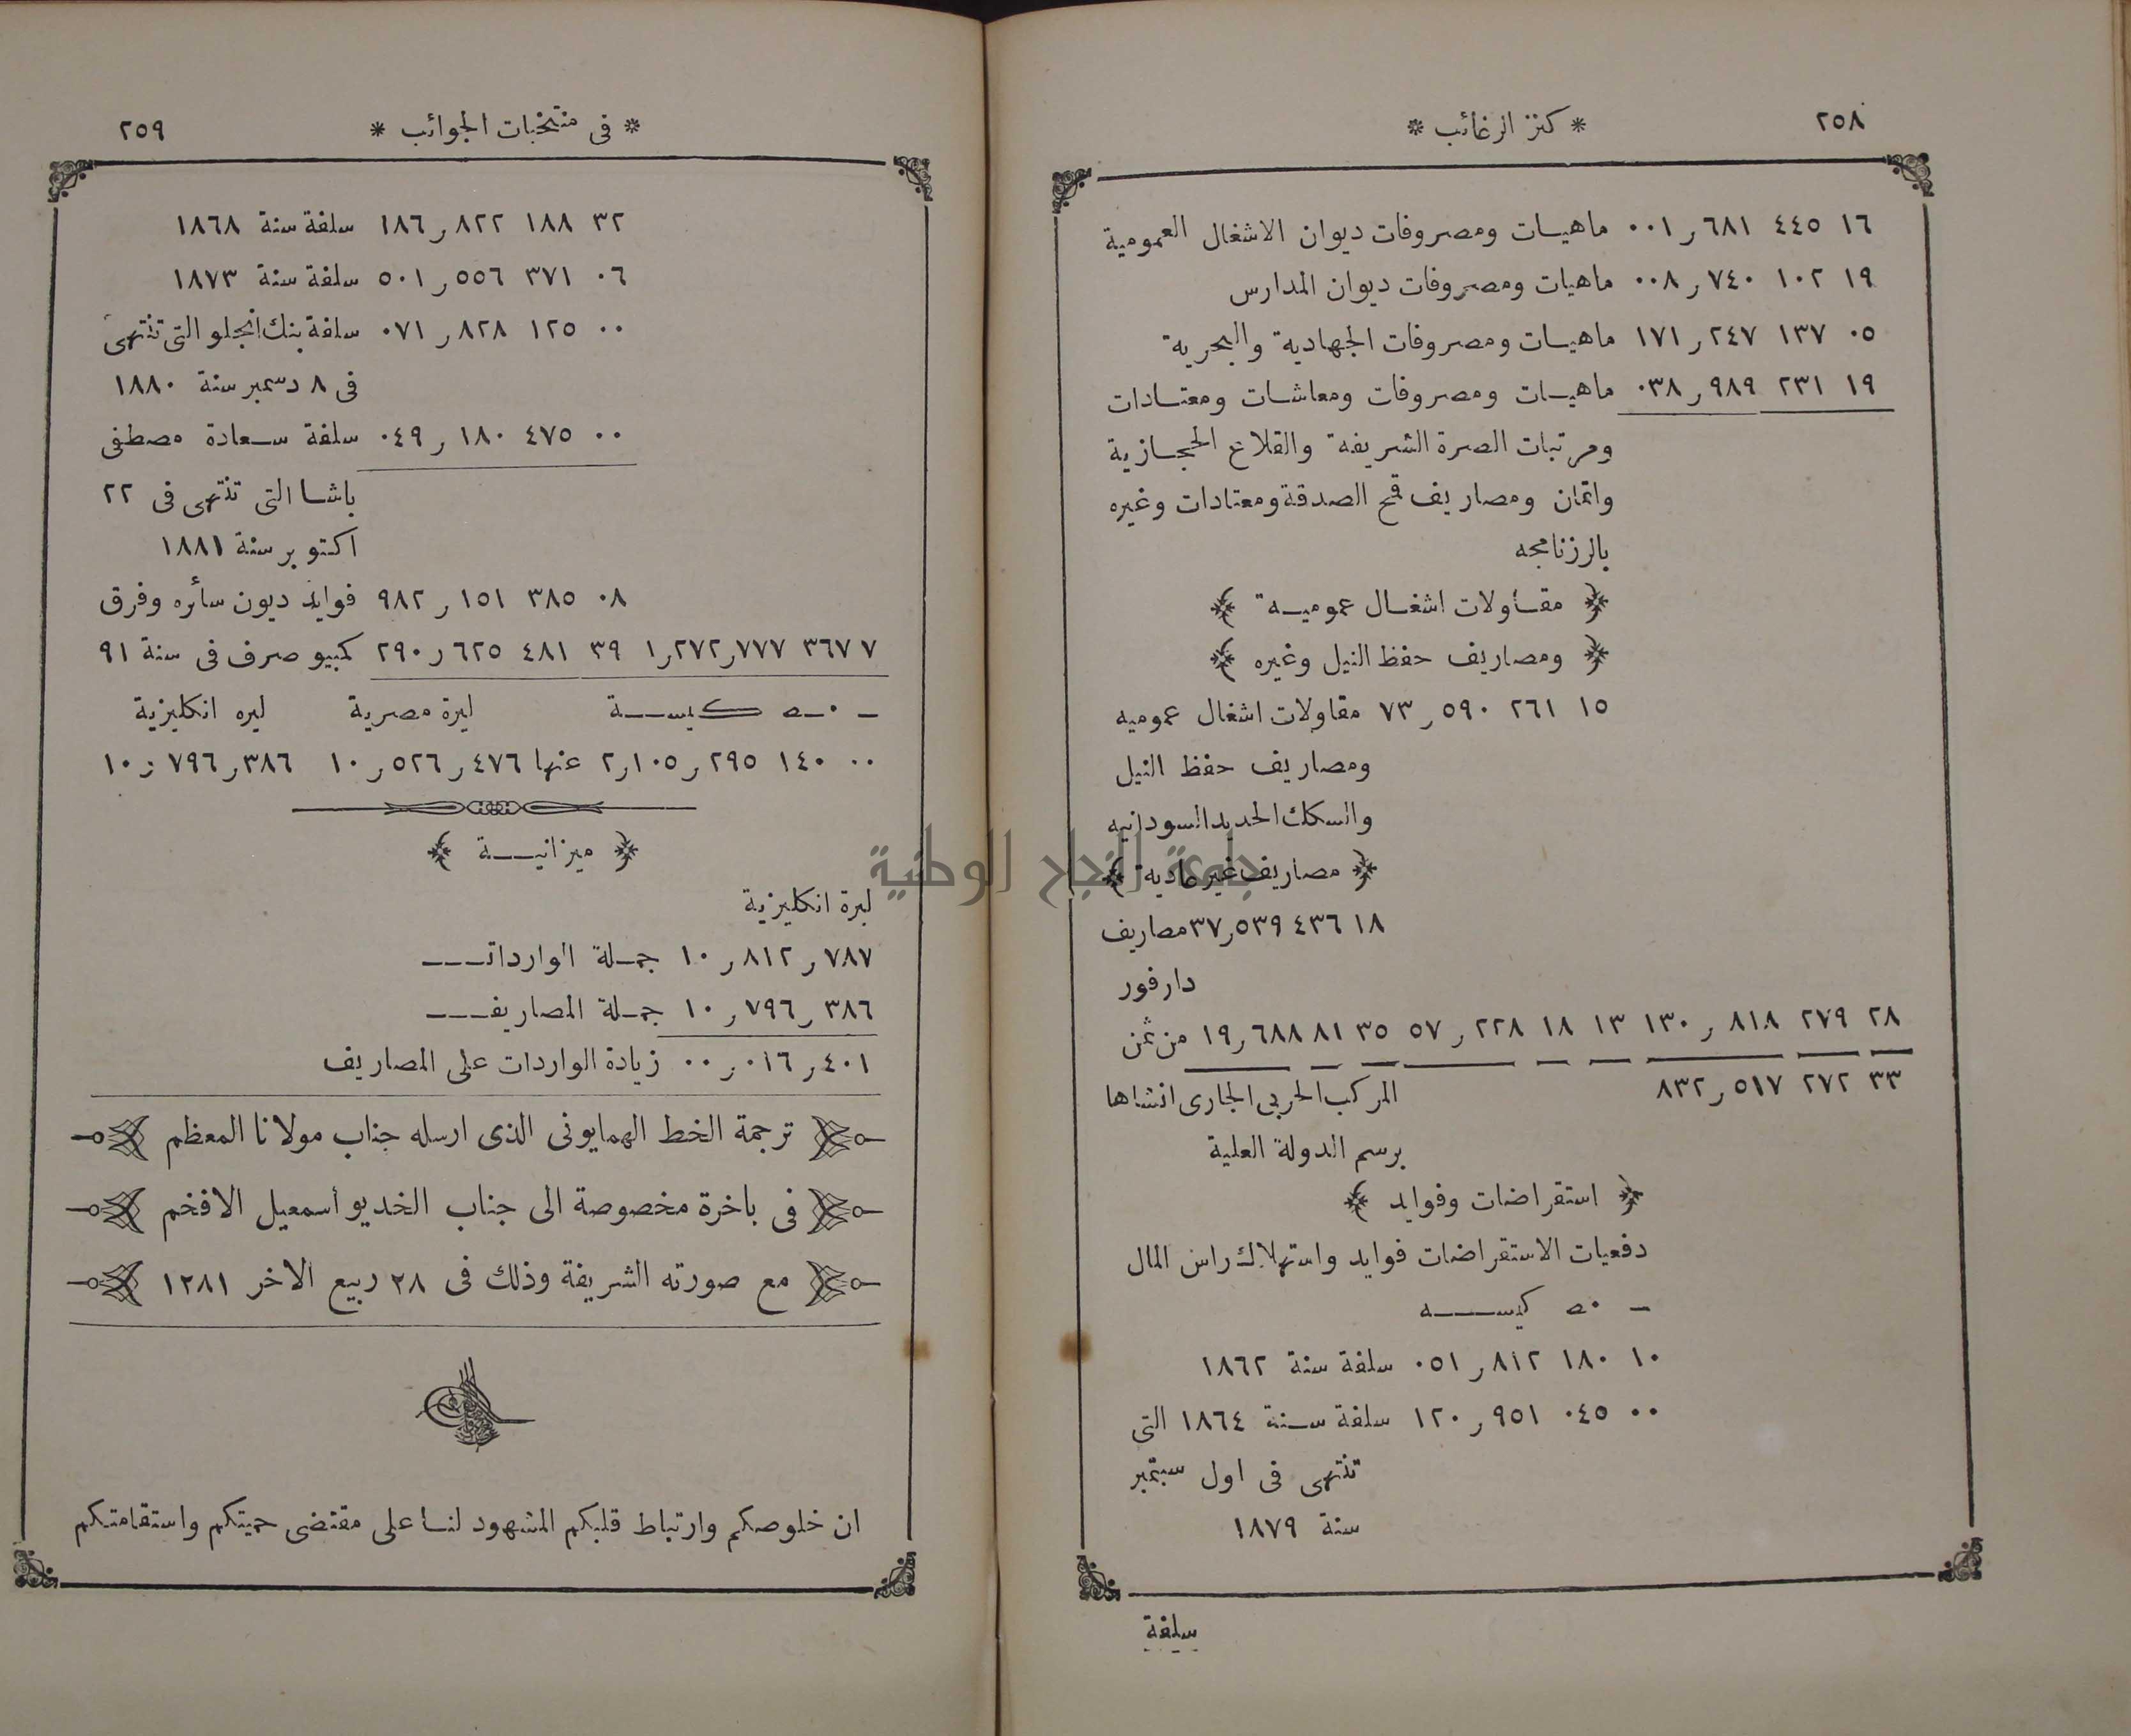 ٢٥٨
* كنز الرغائب *
١٦ ٤٤٥ ٦٨١ر٠٠١ ماهيات ومصروفات ديوان الاشغال العمومية
١٩ ١٠٢ ٧٤٠ر٠٠٨ ماهيات ومصروفات ديوان المدارس
٠٥ ١٣٧ ٢٤٧ر١٧١ ماهيات ومصروفات الجهادية والبحرية
١٩ ٢٣١ ٩٨٩ر٠٣٨ ماهيات ومصروفات ومعاشات ومعتادات
ومرتبات الصرة الشريفة والقلاع الحجازية
واثمان ومصاريف قمح الصدقة ومعتادات وغيره
بالرزنامجه
﴿ مقاولات اشغال عمومية ﴾
﴿ ومصاريف حفظ النيل وغيره ﴾
١٥ ٢٦١ ٥٩٠ر٧٣ مقاولات اشغال عموميه
ومصاريف حفظ النيل
والسكك الحديد السودانيه
﴿ مصاريف غير عادية ﴾
١٨ ٤٣٦ ٥٣٩ر٣٧ مصاريف
دارفور
٢٨ ٢٧٩ ٨١٨ر١٣٠ ١٣ ١٨ ٢٢٨ر٥٧ ٣٥ ٨١ ٦٨٨ر١٩ من ثمن
٣٣ ٢٧٢ ٥١٧ر٨٣٢ المركب الحربى الجارى انشاها
برسم الدولة العلية
﴿ استقراضات وفوايد ﴾
دفعيات الاستقراضات فوايد واستهلاك راس المال
كيسه
١٠ ١٨٠ ٨١٢ر٠٥١ سلفة سنة ١٨٦٢
٠٠ ٠٤٥ ٩٥١ر١٢٠ سلفة سنة ١٨٦٤ التى
تنتهى فى اول سبتمبر
سنة ١٨٧٩
سلفة
* فى منتخبات الجوائب *
٢٥٩
٣٢ ١٨٨ ٨٢٢ر١٨٦ سلفة سنة ١٨٦٨
٠٦ ٣٧١ ٥٥٦ر٥٠١ سلفة سنة ١٨٧٣
٠٠ ١٢٥ ٨٢٨ر٠٧١ سلفة بنك انجلو التى تنتهى
فى ٨ دسمبر سنة ١٨٨٠
٠٠ ٤٧٥ ١٨٠ر٠٤٩ سلفة سعادة مصطفى
باشا التى تنتهى فى ٢٢
اكتوبر سنة ١٨٨١
٠٨ ٣٨٥ ١٥١ر٩٨٢ فوايد ديون سائره وفرق
٧ ٣٦٧ ٧٧٧ر٢٧٢ر١ ٣٩ ٤٨١ ٦٢٥ر٢٩٠ كمبيو صرف فى سنة ٩١
كيسة ليرة مصرية ليره انكليزية
٠٠ ١٤٠ ٢٩٥ر١٠٥ر٢ عنها ٤٧٦ر٥٢٦ر١٠ ٣٨٦ر٧٩٦ر١٠
﴿ ميزانية ﴾
ليرة انكليزية
٧٨٧ر٨١٢ر١٠ جملة الواردات
٣٨٦ر٧٩٦ر١٠ جملة المصاريف
٤٠١ر٠١٦ر٠٠ زيادة الواردات على المصاريف
﴿ ترجمة الخط الهمايونى الذى ارسله جناب مولانا المعظم ﴾
﴿ فى باخرة مخصوصة الى جناب الخديو أسمعيل الافخم ﴾
﴿ مع صورته الشريفة وذلك فى ٢٨ ربيع الاخر ١٢٨١ ﴾
ان خلوصكم وارتباط قلبكم المشهود لنا على مقتضى حميتكم واستقامتكم
جامعة النجاح الوطنية